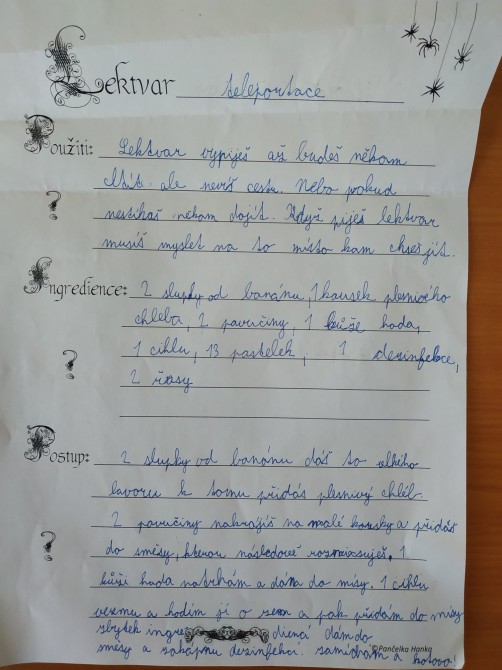 Lektvar teleportace
Použití: Lektvar vypiješ až budeš někam
chtít ale nevíš cestu. Nebo pokud
nestíháš někam dojít. Když piješ lektvar
musíš myslet na to místo kam chceš jít.
Ingredience: 2 slupky od banánu, 1 kousek plesnivého
chleba, 2 pavučiny, 1 kůže hada,
1 cihlu, 13 pastelek, 1 dezinfekce,
2 řasy
Postup: 2 slupky od banánu dáš to velkého
lavoru k tomu přidáš plesnivý chléb.
2 pavučiny nakrájíš na malé kousky a přidáš
do směsy, kterou následově rozmixuješ. 1
kůži hada natrhám a dám do mísy. 1 cihlu
vezmu a hodím jí o zem a pak přidám do mísy
zbytek ingrediencí dám do
směsy a zakápnu dezinfekcí. zamíchám a hotovo!
©Pančelka Hanka